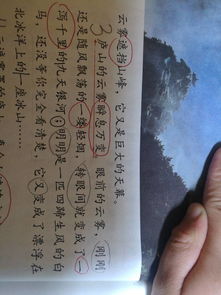 云雾遮挡山峰，它又是巨大的天幕。
3庐山的云雾瞬息万变。眼前的云雾，刚刚
还是随风飘荡的一缕轻烟，转眼间就变成了一
泻千里的九天银河；明明是一匹四蹄生风的白
马，还没等你完全看清楚，它又变成了漂浮在
北冰洋上的一座冰山……